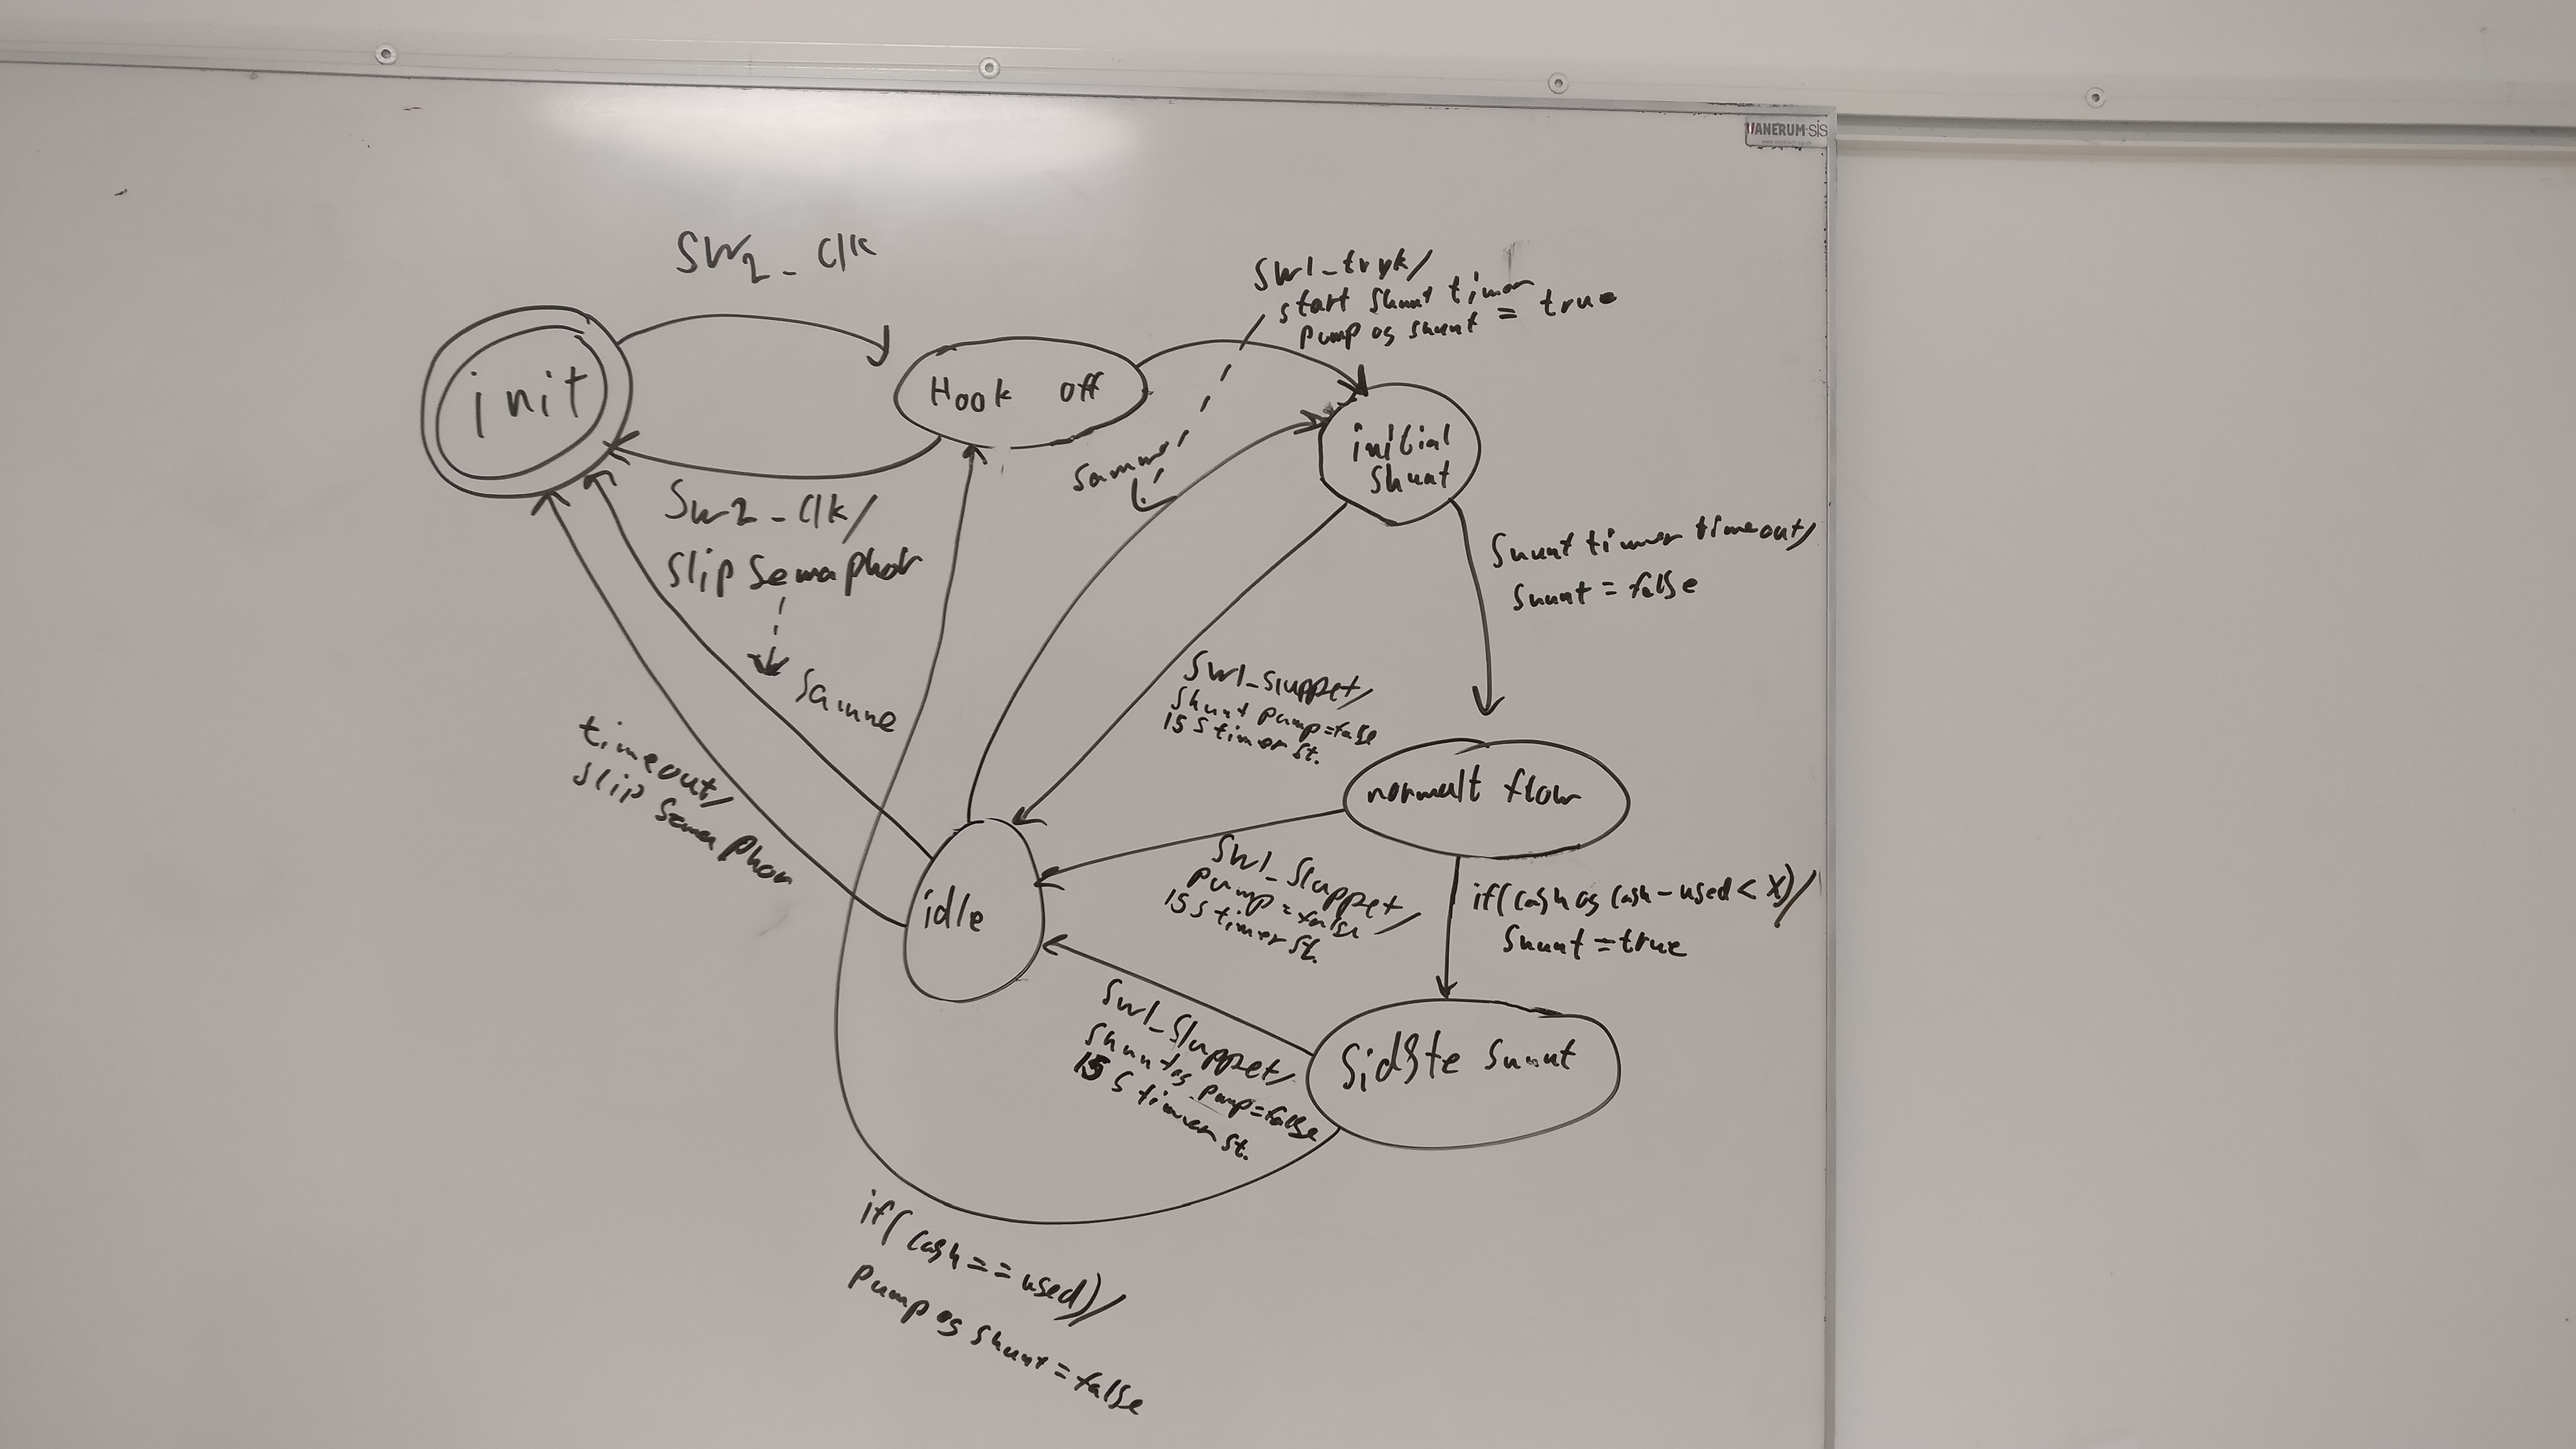 VANERUM SIS
SW2_Clk
SW1_tryk/
start shunt timer
pump og shunt = true
init
Hook off
initial
shunt
samme
SW2_Clk/
slip semaphor
samme
Shunt timer timeout/
shunt = false
SW1_sluppet/
shunt pump=false
15 s timer st.
timeout/
slip semaphor
normalt flow
SW1_sluppet/
pump = false
15 s timer st.
if(cash og cash-used < X)/
shunt = true
idle
SW1_sluppet/
shunt og pump=false
15 s timer st.
Sidste shunt
if(cash == used)/
pump og shunt = false